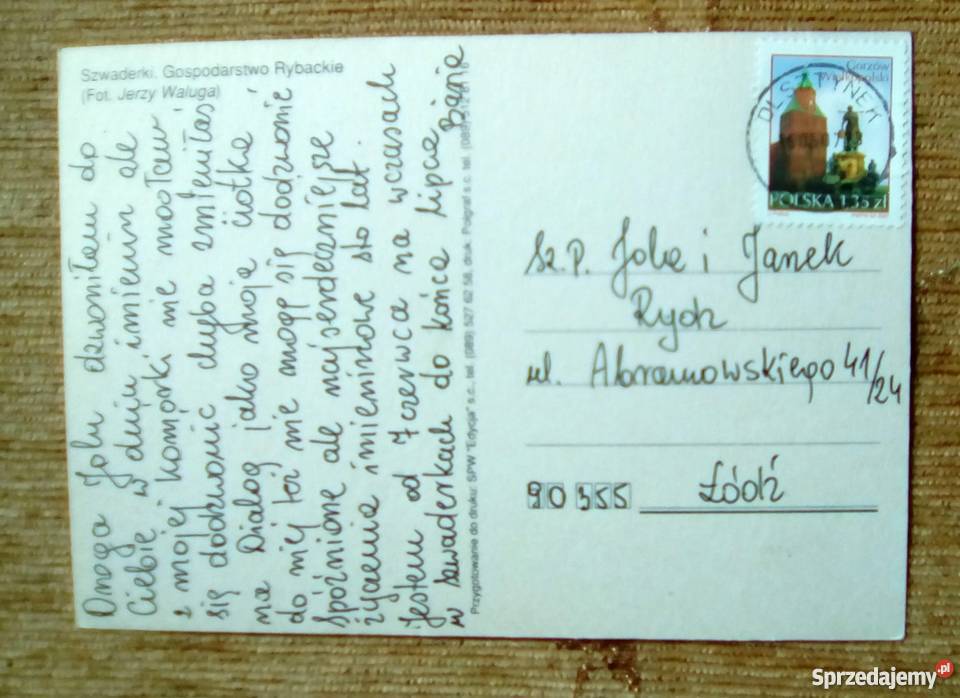 Szwaderki. Gospodarstwo Rybackie
(Fot. Jerzy Waluga)
Droga Jolu dzwoniłem do
Ciebie w dniu imienin ale
z mojej komórki nie mogłam
się dodzwonić chyba zmieniłaś
na Dialog jako moja ciotka
do niej też nie mogę się dodzwonić
spóźnione ale najserdeczniejsze
życzenia imieninowe sto lat.
Jestem od 7 czerwca na wczasach
w Szwaderkach do końca lipca
Przygotowanie do druku: SPW "Edycja" s.c., tel. (089) 527 62 58, druk: Poligraf s.c. tel. (089)
Gorzów
Wielkopolski
OLSZTYNEK
POLSKA 1,35 zł
Sz.P. Jola i Janek
Rych
ul. Abramowskiego 41/24
90 355 Łódź
Sprzedajemy.pl